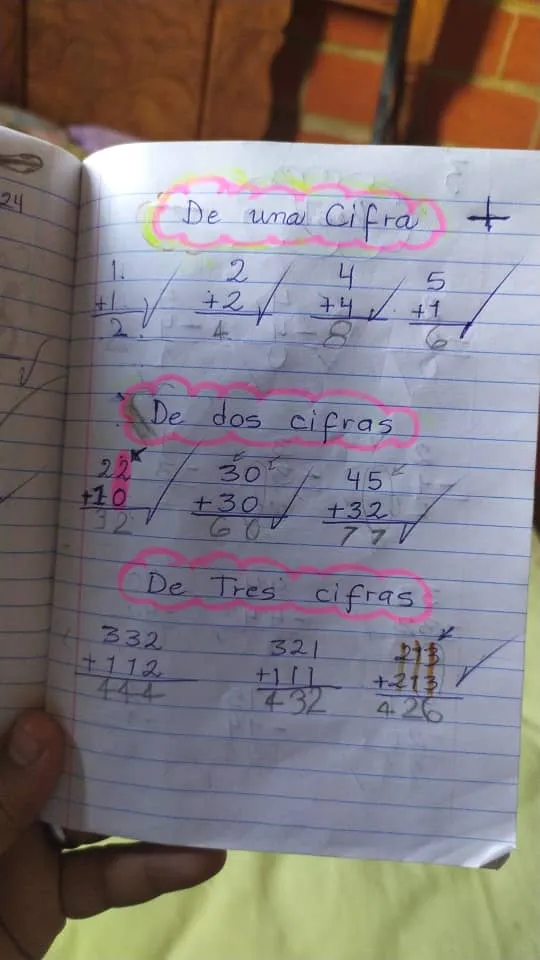 24
De una Cifra +
1 2 4 5
+1 +2 +4 +1
2 4 8 6
De dos cifras
22 30 45
+10 +30 +32
32 60 77
De Tres cifras
332 321 213
+112 +111 +213
444 432 426